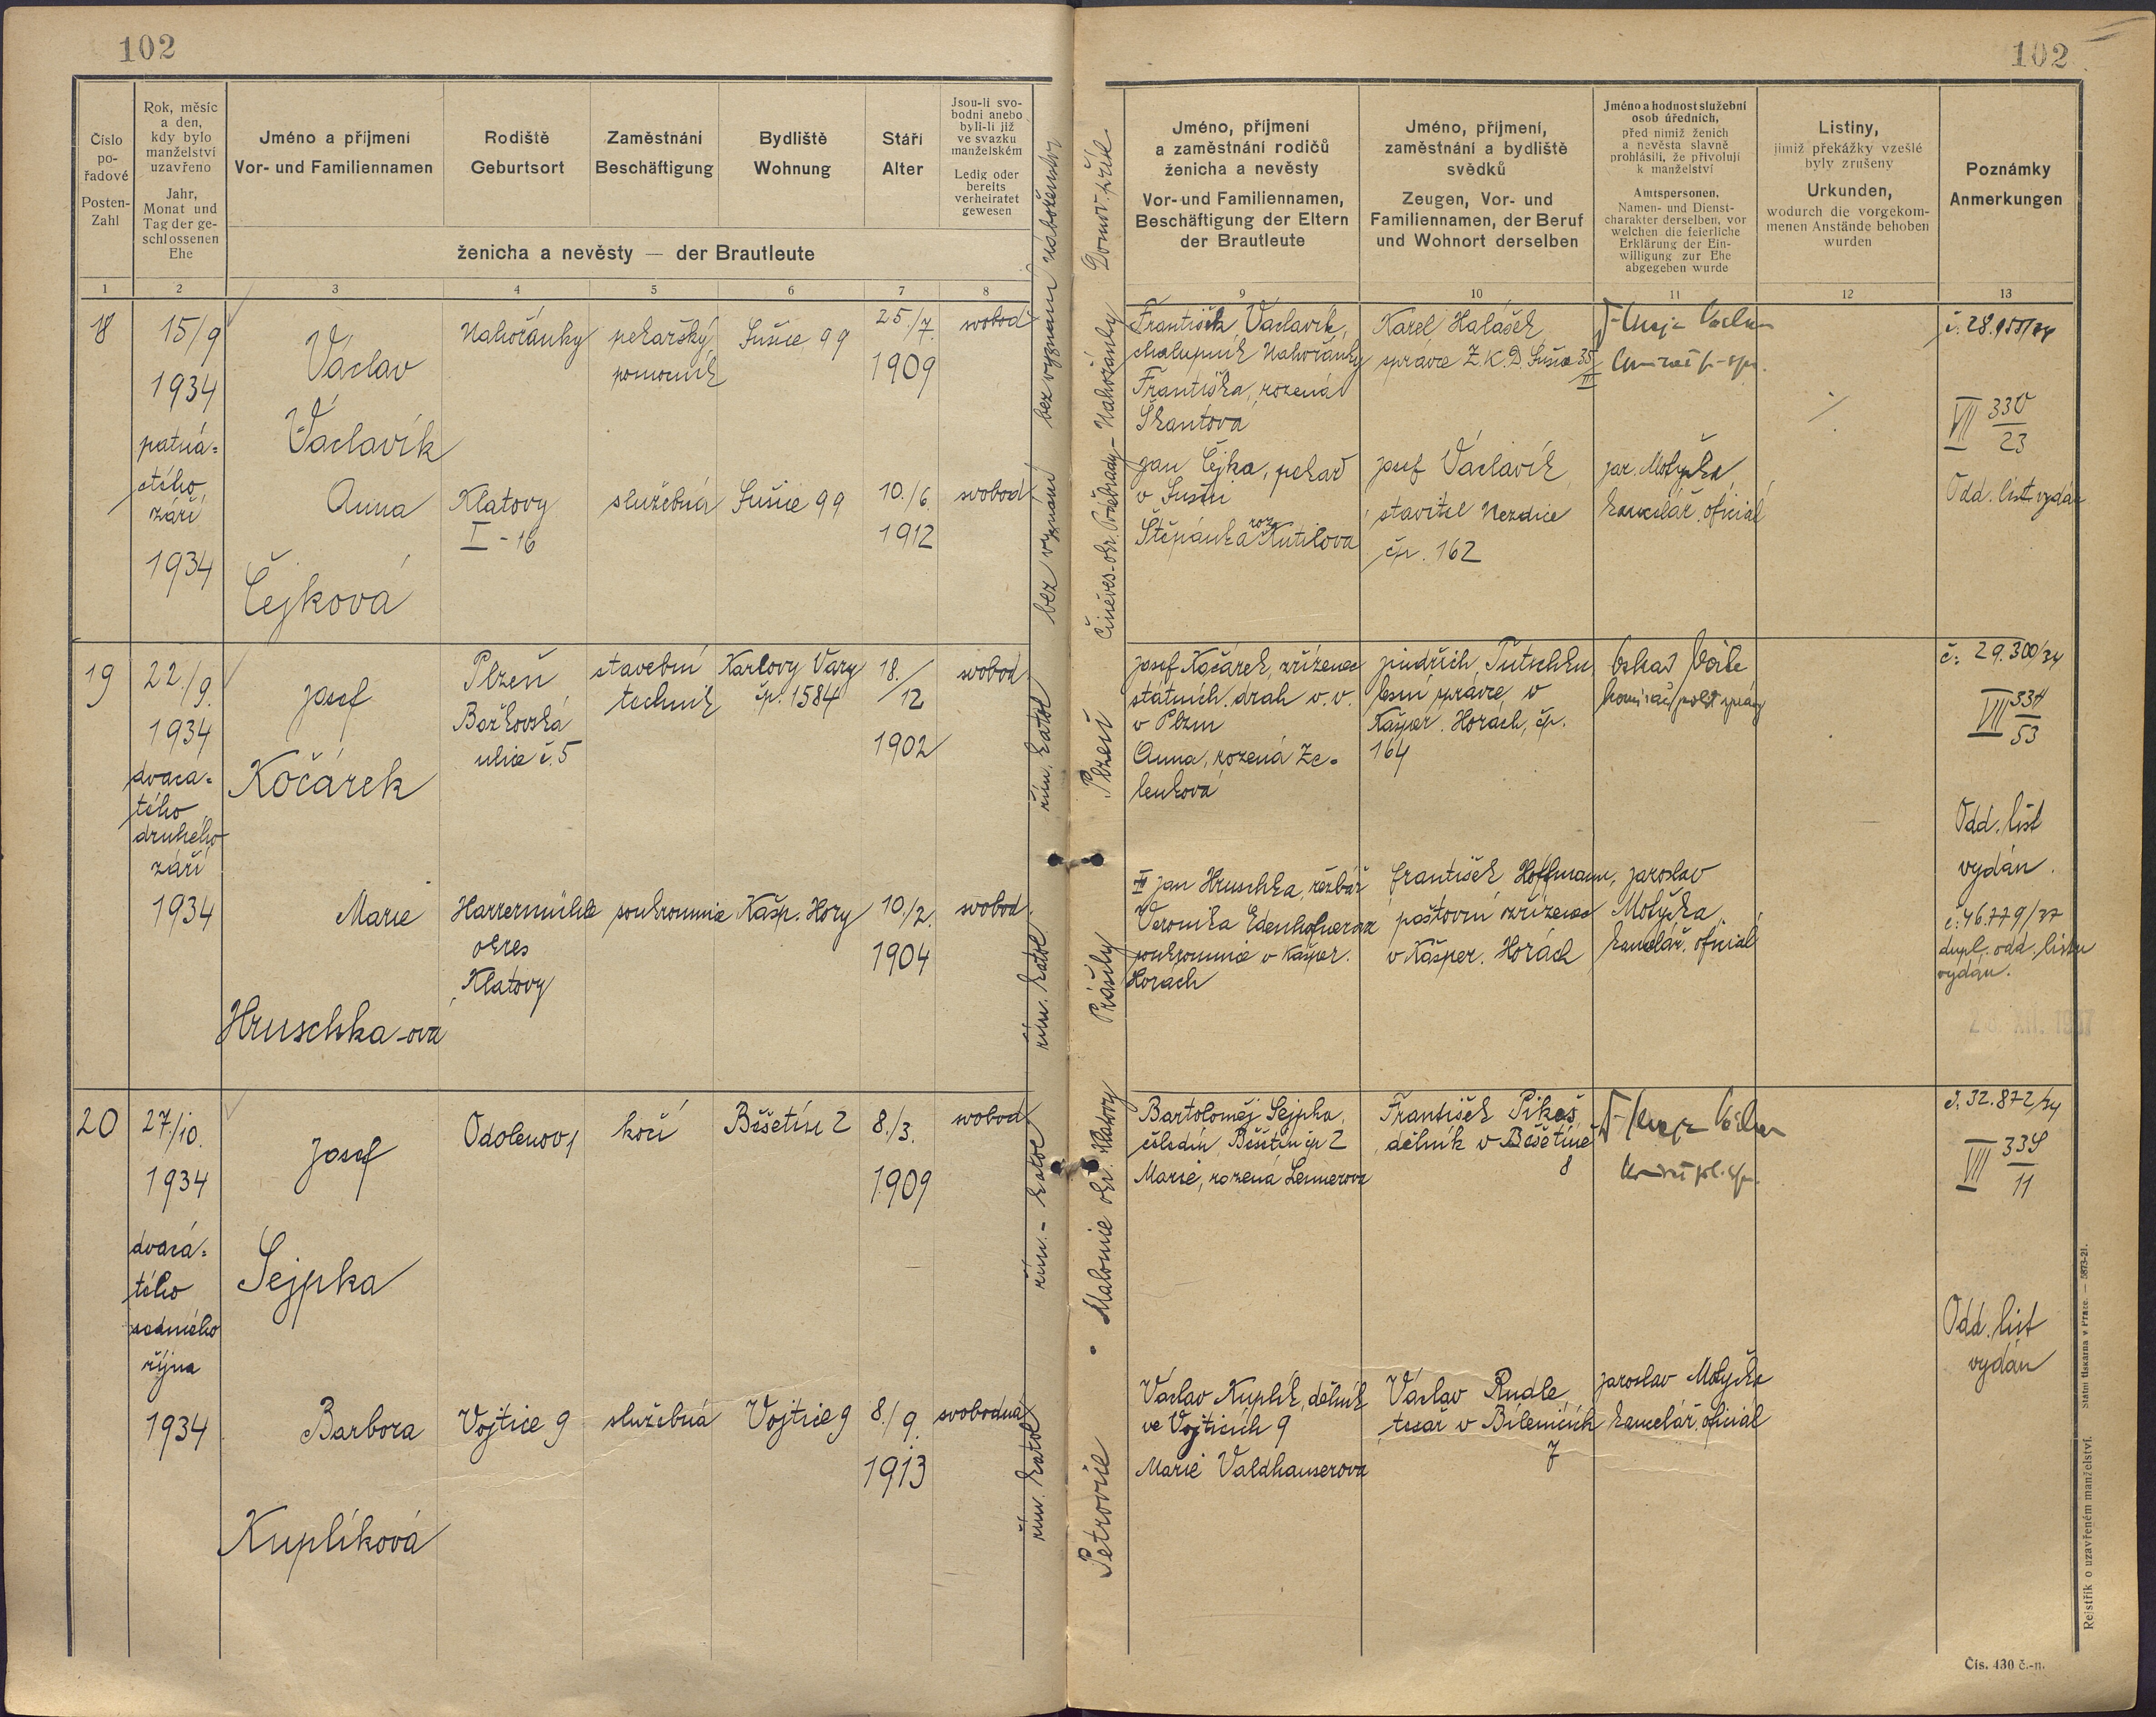 102
Číslo pořadové
Posten-Zahl
Rok, měsíc
a den,
kdy bylo
manželství
uzavřeno
Jahr,
Monat und
Tag der ge-
schlossenen
Ehe
Jméno a příjmení
Vor- und Familiennamen
Rodiště
Geburtsort
Zaměstnání
Beschäftigung
Bydliště
Wohnung
Stáří
Alter
Jsou-li svo-
bodni anebo
byli-li již
ve svazku
manželském
Ledig oder
bereits
verheiratet
gewesen
ženicha a nevěsty — der Brautleute
1 2 3 4 5 6 7 8
18
15/9
1934
patná-
ctého
září
1934
Václav
Václavík
Nahořánky
pekařský
pomocník
Sušice 99
25./7.
1909
svobod
bez vyznání náboženskou
Anna
Čejková
Klatovy
I - 16
služebná
Sušice 99
10./6.
1912
svobod
bez vyznání
19
22./9.
1934
dvacá-
tého
druhého
září
1934
Josef
Kočárek
Plzeň
Božkovská
ulice č. 5
stavební
technik
Karlovy Vary
čp. 1584
18./12
1902
svobod
řím. katol
Marie
Hruschka-ová
Harrermühle
okres
Klatovy
soukromnice
Kašp. Hory
10./2.
1904
svobod.
řím. katol.
20
27/10.
1934
dvacá-
tého
sedmého
října
1934
Josef
Šejpka
Odolenov 1
kočí
Běšetín 2
8./3.
1909
svobod
řím. - katol
Barbora
Kuplíková
Vojtice 9
služebná
Vojtice 9
8./9.
1913
svobodná
řím. katol
102
Jméno, příjmení
a zaměstnání rodičů
ženicha a nevěsty
Vor- und Familiennamen,
Beschäftigung der Eltern
der Brautleute
Jméno, příjmení,
zaměstnání a bydliště
svědků
Zeugen, Vor- und
Familiennamen, der Beruf
und Wohnort derselben
Jméno a hodnost služební
osob úředních,
před nimiž ženich
a nevěsta slavně
prohlásili, že přivolují
k manželství
Amtspersonen,
Namen- und Dienst-
charakter derselben, vor
welchen die feierliche
Erklärung der Ein-
willigung zur Ehe
abgegeben wurde
Listiny,
jimiž překážky vzešlé
byly zrušeny
Urkunden,
wodurch die vorgekom-
menen Anstände behoben
wurden
Poznámky
Anmerkungen
9 10 11 12 13
Domov. přísl
Nahořánky
Činěves-okr. Poděbrady
František Václavík,
chalupník Nahořánky
Františka, rozená
Škantová
Jan Čejka, pekař
v Sušici
Štěpánka roz. Kutilova
Karel Halášek
správce Z.K.D. Sušice 35/II
Josef Václavík
stavitel Nezdice
čp. 162
Jar. Motyčka
kancelář. oficiál
č. 28.155/34
VII 330/23
Odd. list vydán
Plzeň
Josef Kočárek, zřízenec
státních drah v. v.
v Plzni
Anna, rozená Ze-
lenková
Jindřich Tutschku
lesní správce v
Kašper. Horách, čp.
164
č: 29.300/34
VII 334/53
Odd. list
vydán.
č: 46.779/37
dupl. odd. listu
vydán.
Prášily
Jan Hruschka, řezbář
Veronika Edenhofnerov
soukromnice v Kašper.
Horách
František Hoffmann,
poštovní zřízenec
v Kašper. Horách
Jaroslav
Motyčka
kancelář. oficiál
Malonice okr. Klatovy
Bartoloměj Šejpka,
čeledín Běšetín čp 2
Marie, rozená Lennerova
František Pikeš
dělník v Běšetíně
8
č. 32.872/34
VII 338/11
Odd. list
vydán
Petrovice
Václav Kuplík, dělník
ve Vojticích 9
Marie Valdhauserova
Václav Rudle
tesař v Bílenicích
7
Jaroslav Motyčka
kancelář. oficiál
Rejstřík o uzavřeném manželství. Státní tiskárna v Praze. — 5873-21.
Čís. 430 č.-n.